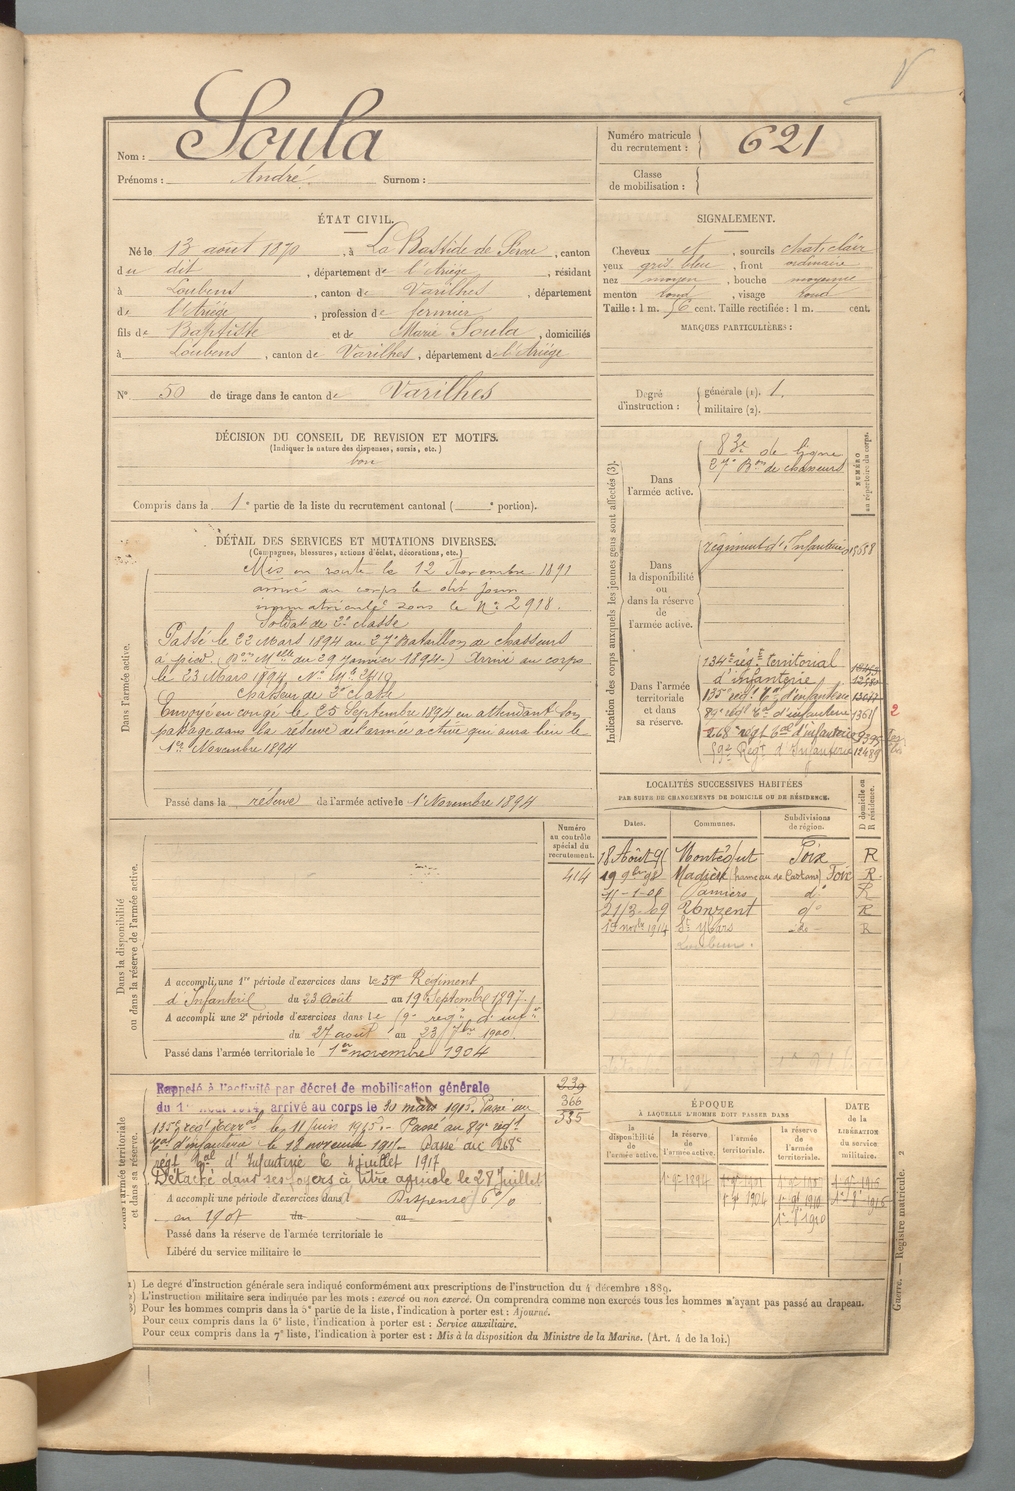 Nom : Soula
Prénoms : André Surnom :
Numéro matricule du recrutement : 621
Classe de mobilisation :
ÉTAT CIVIL.
Né le 13 août 1870, à La Bastide de Sérou, canton
du dit, département de l'Ariège, résidant
à Loubens, canton de Varilhes, département
de l'Ariège, profession de fermier
fils de Baptiste et de Marie Soula, domiciliés
à Loubens, canton de Varilhes, département de l'Ariège
N° 50 de tirage dans le canton de Varilhes
SIGNALEMENT.
Cheveux et, sourcils chat. clair
yeux gris bleu, front ordinaire
nez moyen, bouche moyenne
menton rond, visage rond
Taille : 1 m. 56 cent. Taille rectifiée : 1 m. cent.
MARQUES PARTICULIÈRES :
Degré d'instruction : générale (1). 1.
militaire (2).
DÉCISION DU CONSEIL DE REVISION ET MOTIFS.
(Indiquer la nature des dispenses, sursis, etc.)
bon
Compris dans la 1e partie de la liste du recrutement cantonal ( e portion).
DÉTAIL DES SERVICES ET MUTATIONS DIVERSES.
(Campagnes, blessures, actions d'éclat, décorations, etc.)
Dans l'armée active.
Mis en route le 12 Novembre 1891
arrivé au corps le dit jour
immatriculé sous le N° 2918.
Soldat de 2e classe
Passé le 22 Mars 1894 au 27e Bataillon de chasseurs
à pied. (Bon Melle du 29 Janvier 1894.) Arrivé au corps
le 23 Mars 1894. No Mle 2410
Chasseur de 2e classe
Envoyé en congé le 25 Septembre 1894 en attendant son
passage dans la réserve de l'armée active qui aura lieu le
1er Novembre 1894
Passé dans la réserve de l'armée active le 1er Novembre 1894
Indication des corps auxquels les jeunes gens sont affectés (3).
NUMÉRO au répertoire du corps.
Dans l'armée active.
83e de ligne
27e Bon de chasseurs
Dans la disponibilité ou dans la réserve de l'armée active.
régiment d'Infanterie
Dans l'armée territoriale et dans sa réserve.
134e régt territorial
d'infanterie
135e régt tal d'infanterie
89e régt tal d'infanterie 13615
268e régt tal d'infanterie
59e Régt d'Infanterie 12489
2
LOCALITÉS SUCCESSIVES HABITÉES
PAR SUITE DE CHANGEMENTS DE DOMICILE OU DE RÉSIDENCE.
Dates. Communes. Subdivisions de région. D domicile ou R résidence.
18 Août 95 Montégut Foix R
19 9bre 98 Madière (hameau de Castans) Foix R.
11-1-06 Pamiers d° R
21/3-09 Unzent d° R
1er novbre 1914 St Ybars do R
Loubens.
Dans la disponibilité ou dans la réserve de l'armée active.
Numéro au contrôle spécial du recrutement.
414
A accompli une 1re période d'exercices dans le 59e Régiment
d'Infanterie du 23 Août au 19 Septembre 1897.
A accompli une 2e période d'exercices dans le 59e régt d'infie
du 27 août au 23 7bre 1900.
Passé dans l'armée territoriale le 1er novembre 1904
Dans l'armée territoriale et dans sa réserve.
239
366
535
Rappelé à l'activité par décret de mobilisation générale
du 1er Août 1914, arrivé au corps le 30 mars 1915. Passé au
135e régt terral le 11 juin 1915. - Passé au 89e régt
tal d'infanterie le 18 novembre 1915. Passé au 268e
régt tal d'Infanterie le 4 juillet 1917
Détaché dans ses foyers à titre agricole le 28 Juillet
A accompli une période d'exercices dans l Dispensé 6%
au 1905 du au
Passé dans la réserve de l'armée territoriale le
Libéré du service militaire le
ÉPOQUE
À LAQUELLE L'HOMME DOIT PASSER DANS
la disponibilité de l'armée active. la réserve de l'armée active. l'armée territoriale. la réserve de l'armée territoriale.
DATE de la LIBÉRATION du service militaire.
1er 9bre 1894
1er 9bre 1904 1er 9bre 1910
Guerre. — Registre matricule. 2
(1) Le degré d'instruction générale sera indiqué conformément aux prescriptions de l'instruction du 4 décembre 1889.
(2) L'instruction militaire sera indiquée par les mots : exercé ou non exercé. On comprendra comme non exercés tous les hommes n'ayant pas passé au drapeau.
(3) Pour les hommes compris dans la 5e partie de la liste, l'indication à porter est : Ajourné.
Pour ceux compris dans la 6e liste, l'indication à porter est : Service auxiliaire.
Pour ceux compris dans la 7e liste, l'indication à porter est : Mis à la disposition du Ministre de la Marine. (Art. 4 de la loi.)